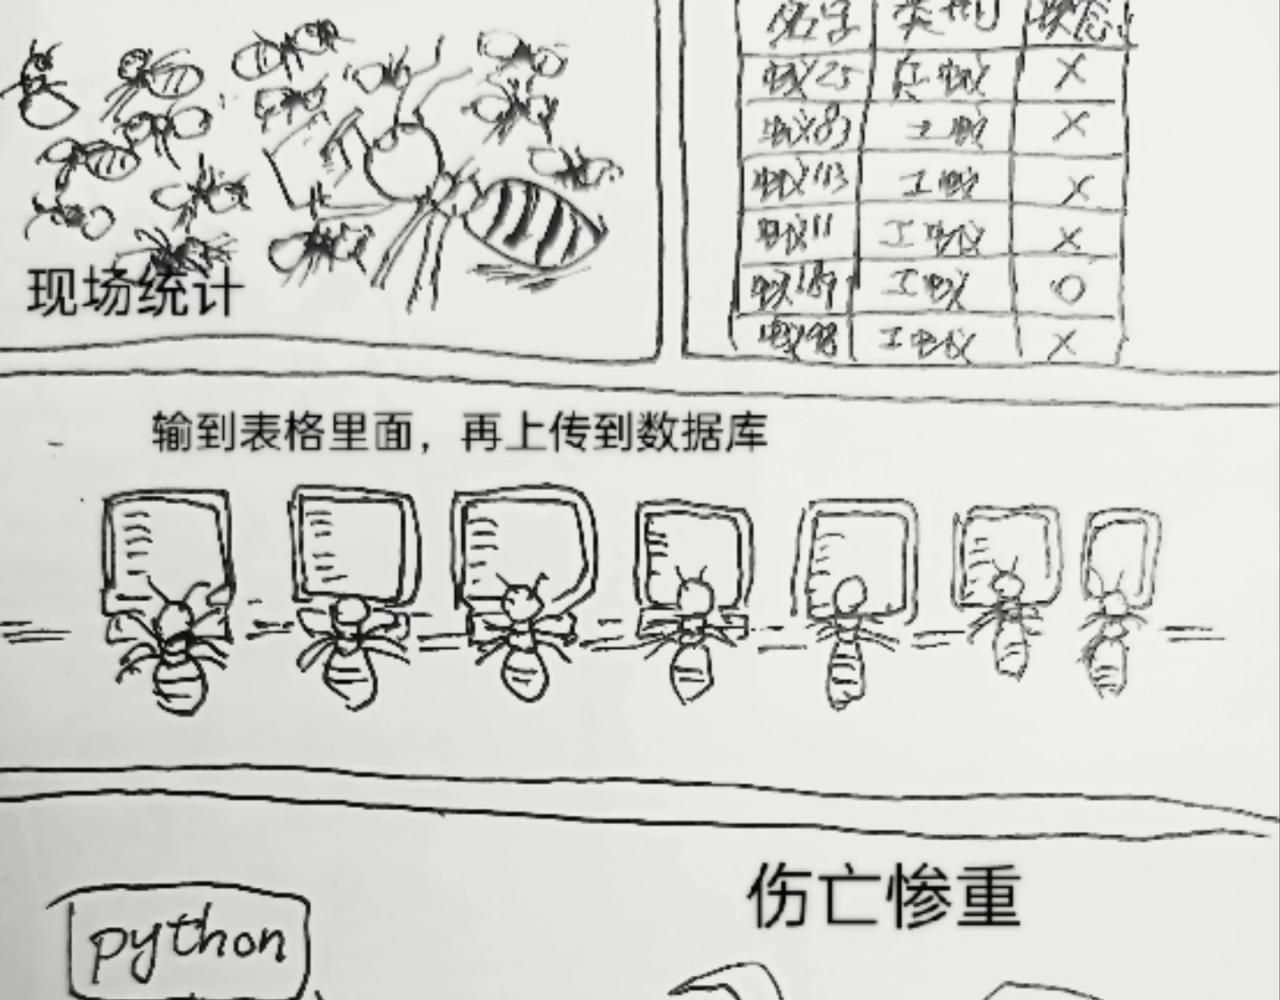 现场统计
名字 类别 状态
蚁25 兵蚁 X
蚁83 工蚁 X
蚁113 工蚁 X
蚁11 工蚁 X
蚁189 工蚁 O
蚁98 工蚁 X
输到表格里面，再上传到数据库
伤亡惨重
python